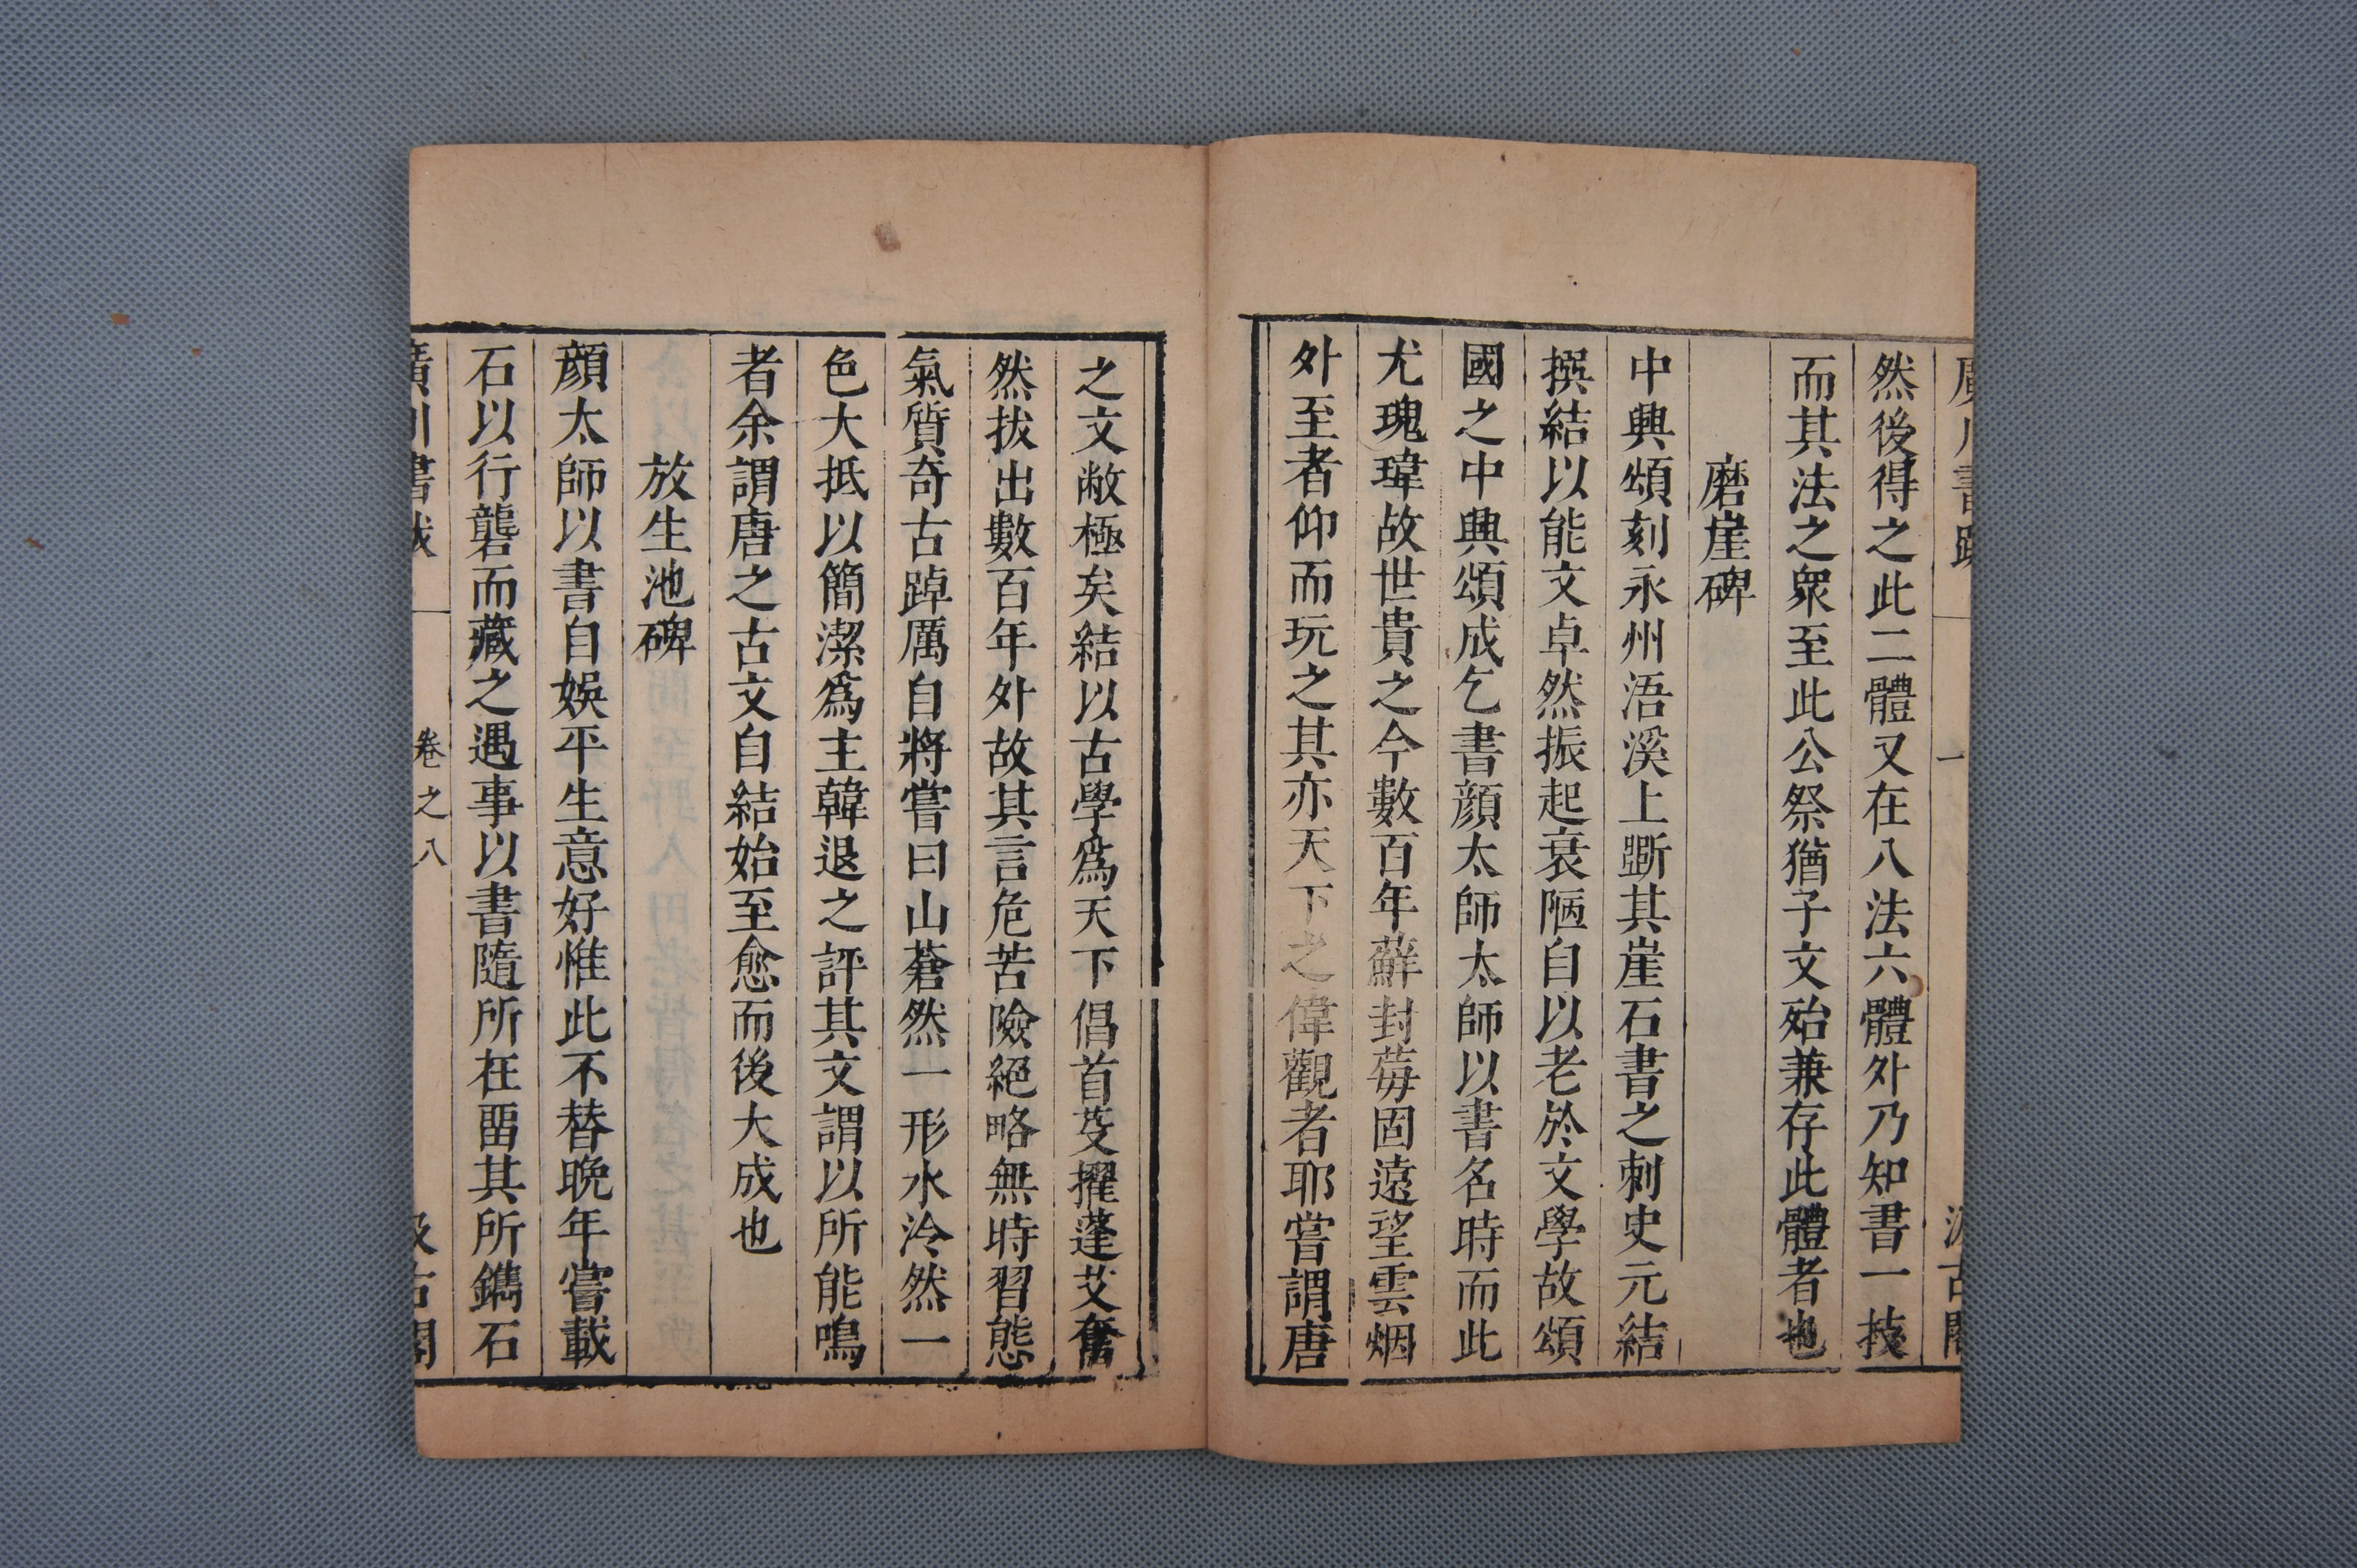 然後得之此二體又在八法六體外乃知書一技
而其法之衆至此公祭猶子文殆兼存此體者也
磨崖碑
中興頌刻永州浯溪上斵其崖石書之刺史元結
撰結以能文卓然振起衰陋自以老於文學故頌
國之中興頌成乞書顔太師太師以書名時而此
尤瑰瑋故世貴之今數百年蘚封莓固遠望雲烟
外至者仰而玩之其亦天下之偉觀者耶嘗謂唐
之文敝極矣結以古學爲天下倡首芟擢蓬艾奮
然拔出數百年外故其言危苦險絕略無時習態
氣質奇古踔厲自將嘗曰山蒼然一形水泠然一
色大抵以簡潔爲主韓退之評其文謂以所能鳴
者余謂唐之古文自結始至愈而後大成也
放生池碑
顔太師以書自娛平生意好惟此不替晚年嘗載
石以行礱而藏之遇事以書隨所在畱其所鐫石
廣川書跋 卷之八 汲古閣